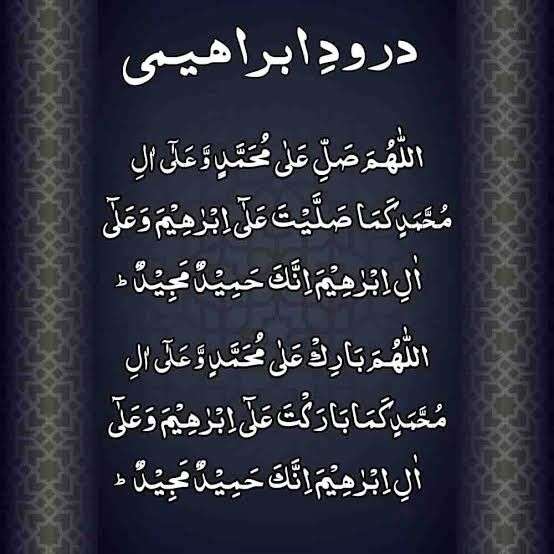 درودِ ابراهيمى
اَللّٰهُمَّ صَلِّ عَلٰى مُحَمَّدٍ وَّعَلٰٓى اٰلِ
مُحَمَّدٍ كَمَا صَلَّيْتَ عَلٰٓى اِبْرٰهِيْمَ وَعَلٰٓى
اٰلِ اِبْرٰهِيْمَ اِنَّكَ حَمِيْدٌ مَّجِيْدٌ ؕ
اَللّٰهُمَّ بَارِكْ عَلٰى مُحَمَّدٍ وَّعَلٰٓى اٰلِ
مُحَمَّدٍ كَمَا بَارَكْتَ عَلٰٓى اِبْرٰهِيْمَ وَعَلٰٓى
اٰلِ اِبْرٰهِيْمَ اِنَّكَ حَمِيْدٌ مَّجِيْدٌ ؕ